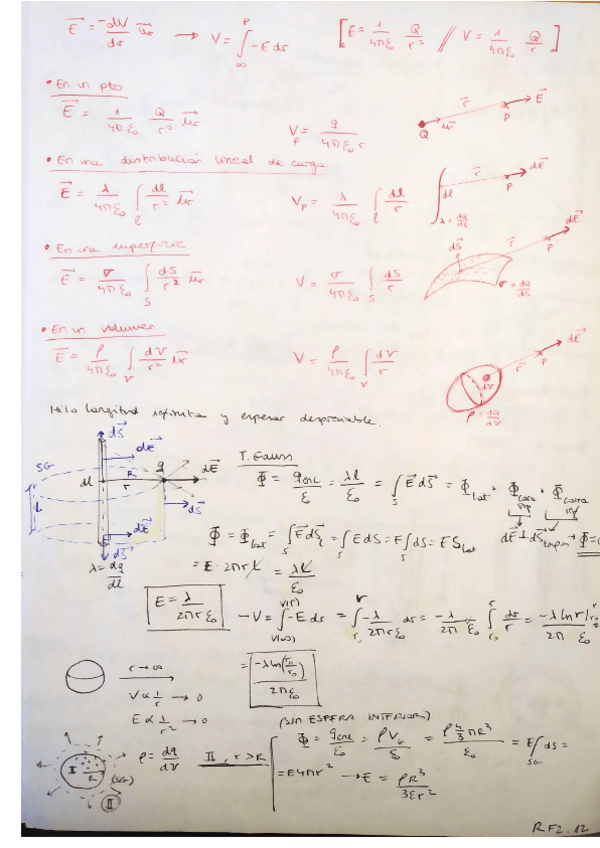 E⃗ = -dV/dr u⃗r → V = ∫_∞^P -E dr [E = 1/4πε₀ Q/r² // V = 1/4πε₀ Q/r]
• En un pto
E⃗ = 1/4πε₀ Q/r² u⃗r V_P = q/4πε₀r Q u⃗r r⃗ P E⃗
• En una distribución lineal de carga
E⃗ = λ/4πε₀ ∫_l dl/r² u⃗r V_P = λ/4πε₀ ∫_l dl/r dl r⃗ P dE⃗ λ = dq/dl
• En una superficie
E⃗ = σ/4πε₀ ∫_S dS/r² u⃗r V = σ/4πε₀ ∫_S dS/r dS⃗ r⃗ P dE⃗ σ = dq/dS
• En un volumen
E⃗ = ρ/4πε₀ ∫_V dV/r² u⃗r V = ρ/4πε₀ ∫_V dV/r dV r⃗ P dE⃗ ρ = dq/dV
Hilo longitud infinita y espesor despreciable.
dS⃗ dE⃗ SG R q dE⃗ dl r l dS⃗ dE⃗ dS⃗ λ = dq/dl
T. Gauss
Φ = q_enc/ε = λl/ε₀ = ∫_S E⃗dS⃗ = Φ_lat + Φ_cara sup + Φ_cara inf
dE⃗ ⊥ dS⃗_tapas → Φ=0
Φ = Φ_lat = ∫_S E⃗dS⃗_l = ∫_S EdS = E∫dS = ES_lat
= E · 2πrl = λl/ε₀
E = λ/2πrε₀ → V = ∫_V(∞)^V(r) -E dr = ∫_r₀^r -λ/2πrε₀ dr = -λ/2πε₀ ∫_r₀^r dr/r = -λ ln r]_r₀^r/2πε₀
= -λ ln(r₀/r₀)/2πε₀
r → ∞
V ∝ 1/r → 0
E ∝ 1/r² → 0
(SIN ESFERA INTERIOR)
I R (SG) II ρ = dq/dV II, r > R Φ = q_enc/ε₀ = ρV_c/ε₀ = ρ 4/3 πR³/ε₀ = E∫_SG dS =
= E4πr² → E = ρR³/3εr²
RF2.12